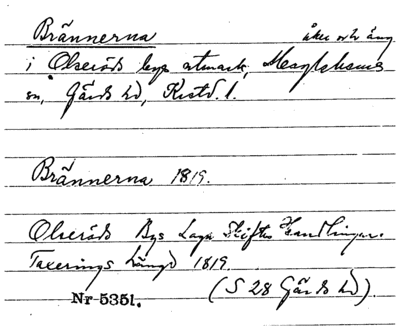 Brännerna åker och äng
i Olseröds bys utmark, Maglehems
sn, Gärds hd, Krstd. l.
Brännerna 1819.
Olseröds Bys Laga Skiftes Handlingar.
Taxerings Längd 1819.
Nr 5351. (S 28 Gärds hd).